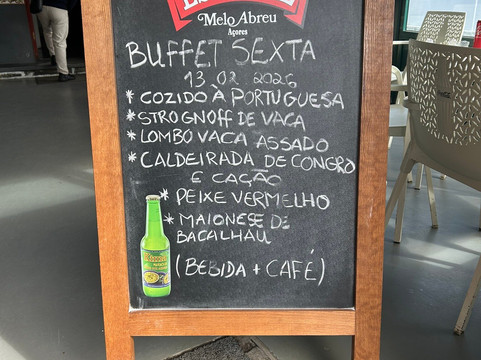 Melo Abreu
Açores
BUFFET SEXTA
13 02 2026
* COZIDO À PORTUGUESA
* STROGNOFF DE VACA
* LOMBO VACA ASSADO
* CALDEIRADA DE CONGRO
E CAÇÃO
* PEIXE VERMELHO
* MAIONESE DE
BACALHAU
(BEBIDA + CAFÉ)